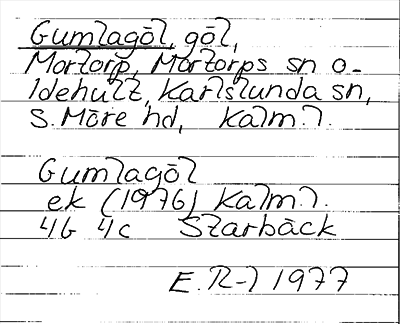 Gumlagöl, göl,
Mortorp, Mortorps sn o.
Idehult, Karlslunda sn,
S. Möre hd, Kalm. l.
Gumlagöl
ek (1976) Kalm. l.
4G 4c Starbäck
E. R-l 1977